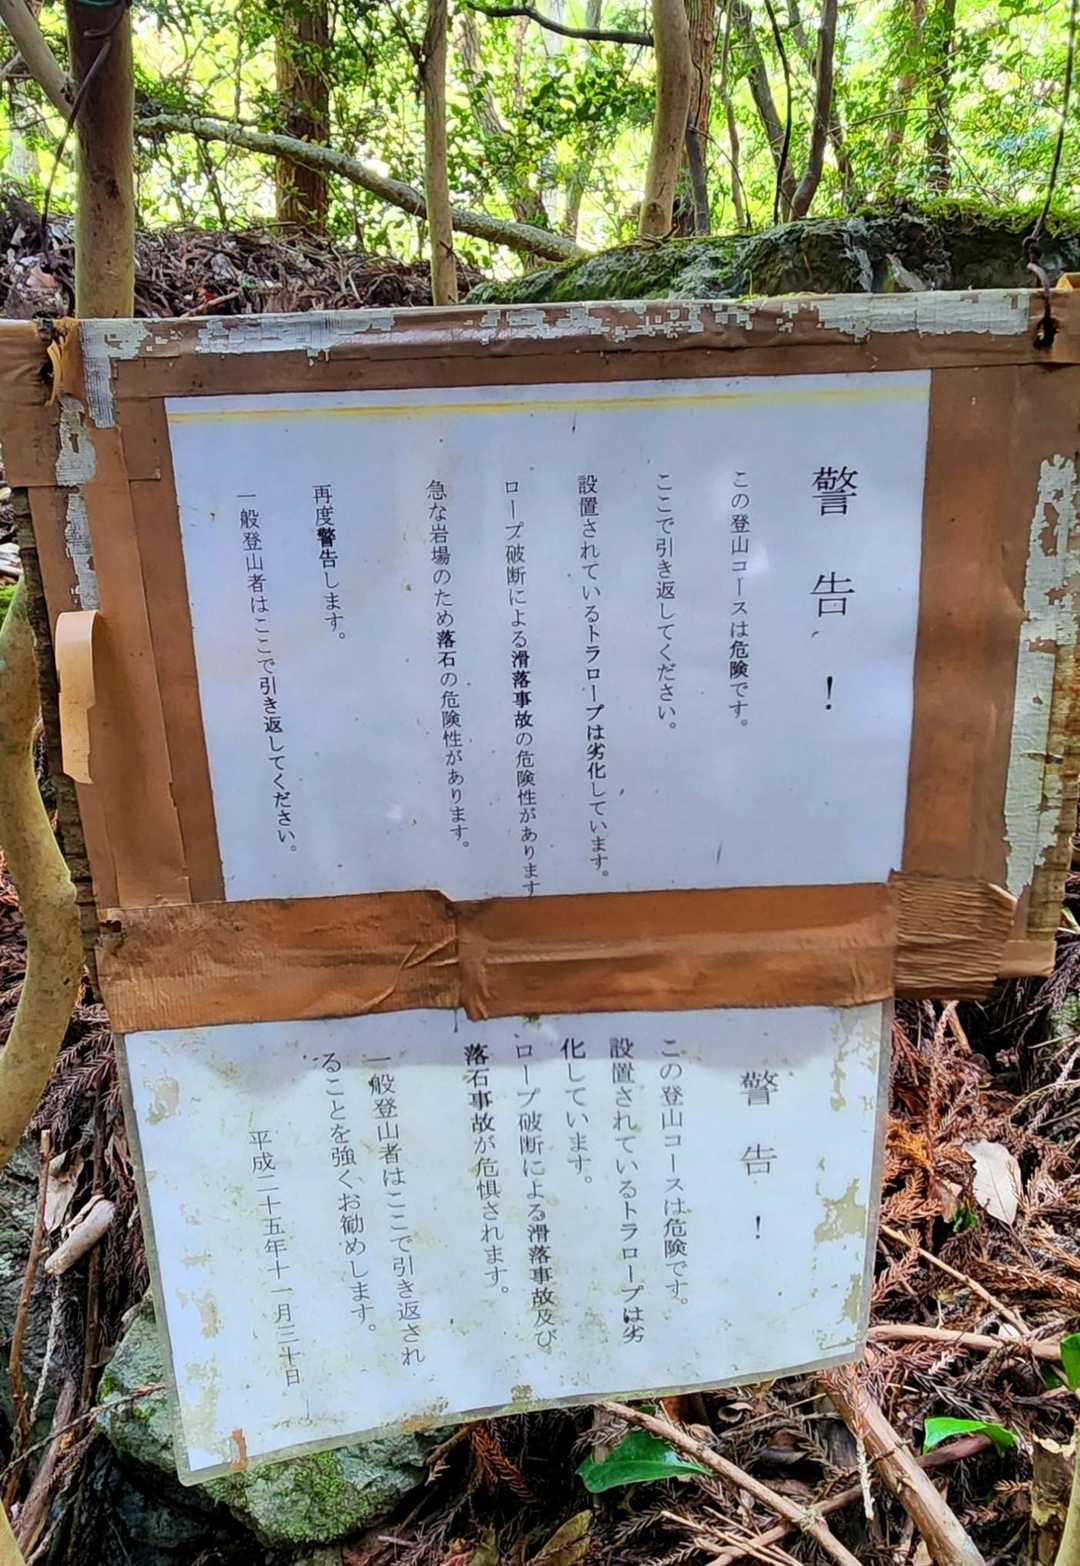 警告!
この登山コースは危険です。
ここで引き返してください。
設置されているトラロープは劣化しています。
ロープ破断による滑落事故の危険性があります
急な岩場のため落石の危険性があります。
再度警告します。
一般登山者はここで引き返してください。
警告!
この登山コースは危険です。
設置されているトラロープは劣
化しています。
ロープ破断による滑落事故及び
落石事故が危惧されます。
一般登山者はここで引き返され
ることを強くお勧めします。
平成二十五年十一月三十日